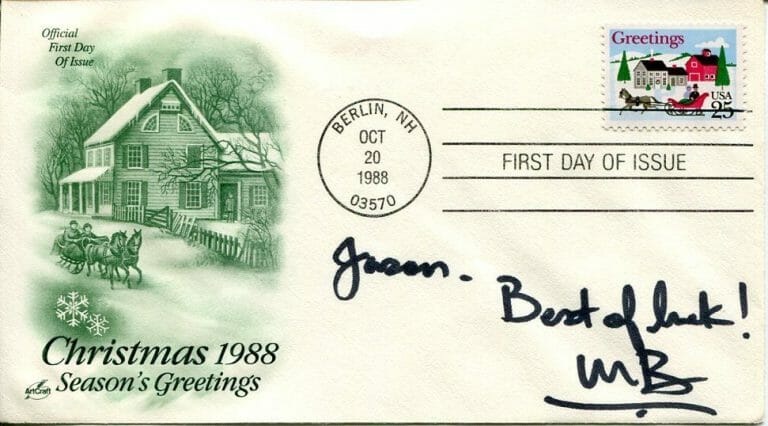 Official
First Day
Of Issue
Greetings
USA
25
BERLIN, NH
OCT
20
1988
03570
FIRST DAY OF ISSUE
Jason.
Best of luck!
MB
Christmas 1988
Season's Greetings
ArtCraft